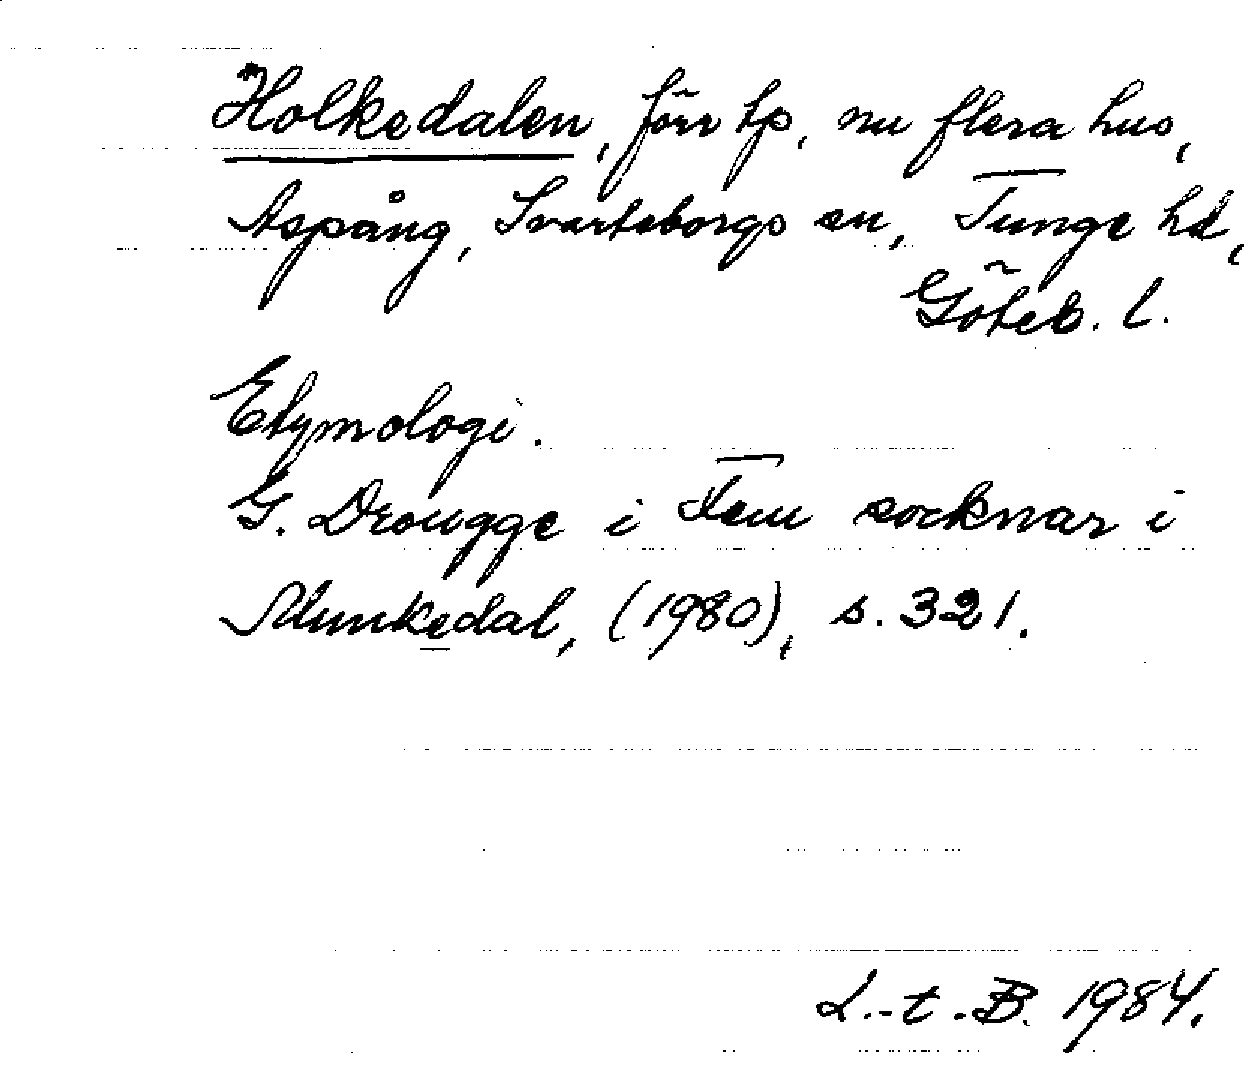 Holkedalen, förr tp, nu flera hus,
Aspång, Svarteborgs sn, Tunge hd,
Göteb. l.
Etymologi.
G. Drougge i Fem socknar i
Munkedal, (1980), s. 321.
L.-t. B. 1984.